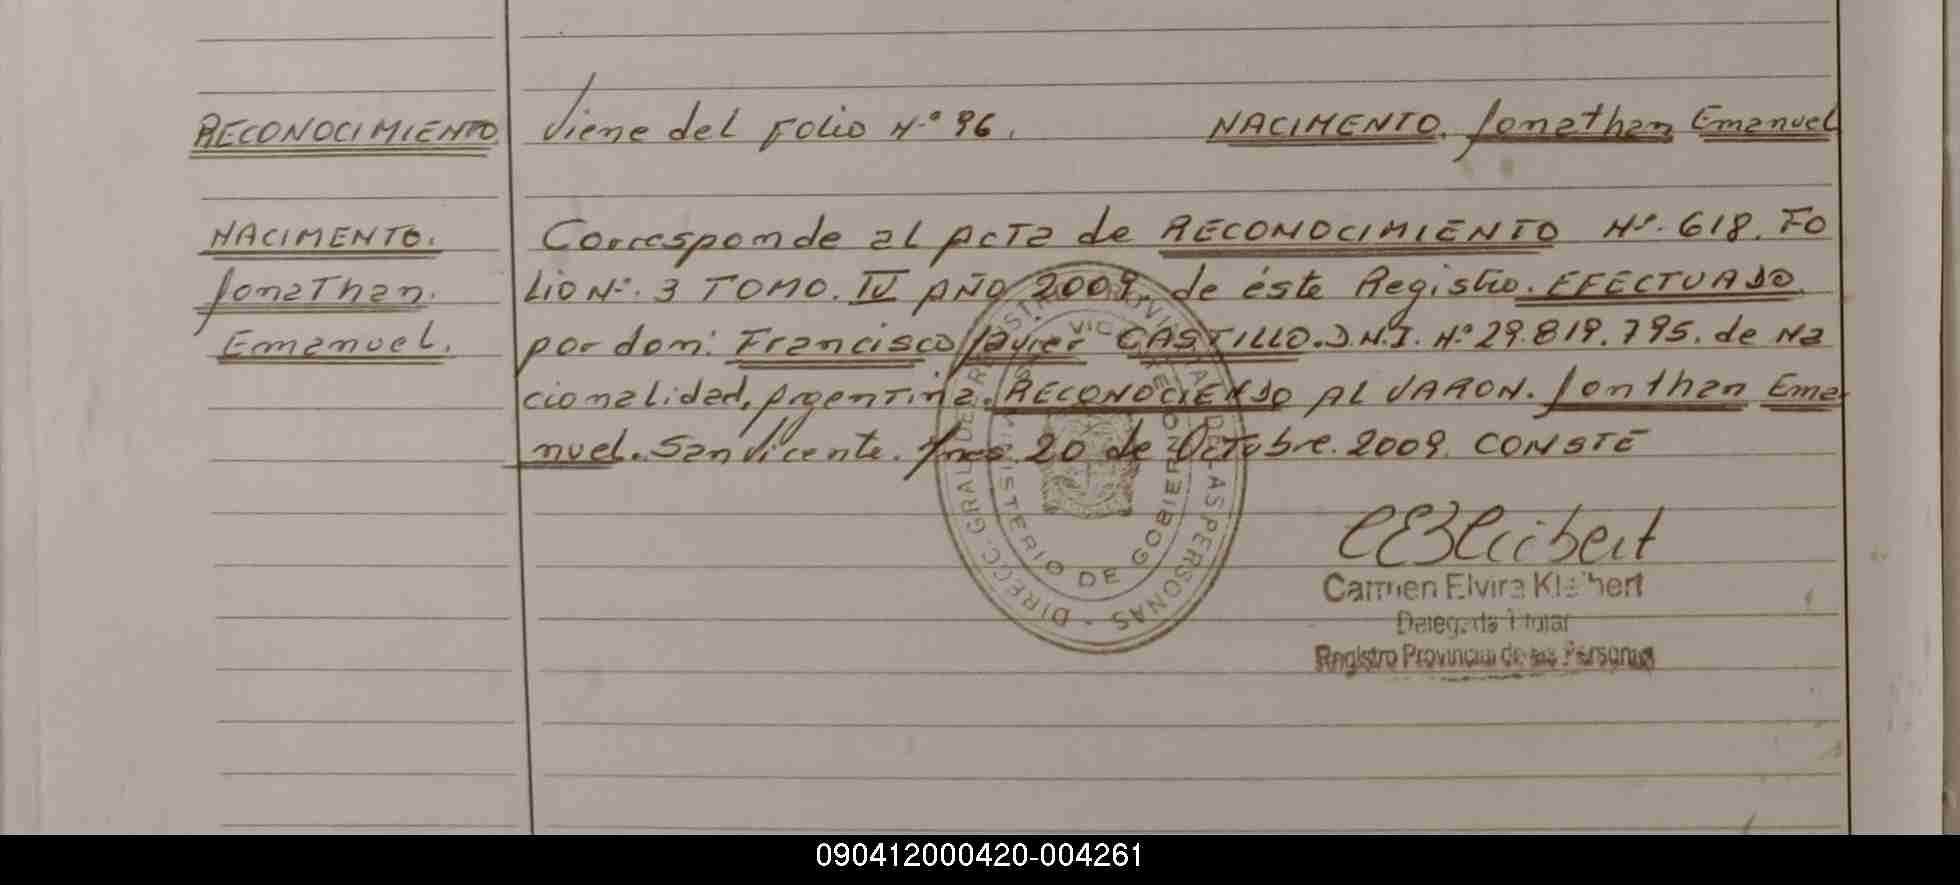 RECONOCIMIENTO Viene del Folio N.º 96. NACIMENTO. Jonathan Emanuel
NACIMENTO. Corresponde al Acta de RECONOCIMIENTO Nº. 618. FO
Jonathan. LIO Nº. 3 TOMO. IV AÑO 2009. de éste Registro. EFECTUADO
Emanuel. por don: Francisco Javier CASTILLO. D.N.I. Nº 29.819.795. de Na
cionalidad, Argentina. RECONOCIENDO AL VARON. Jonthan Ema
nuel. San Vicente. Mnes. 20 de Octubre. 2009. CONSTE
DIRECC. GRAL DE REGISTRO PROVINCIAL DE LAS PERSONAS
MINISTERIO DE GOBIERNO
Carmen Elvira Kleibert
Delegada Titular
Registro Provincial de las Personas
090412000420-004261